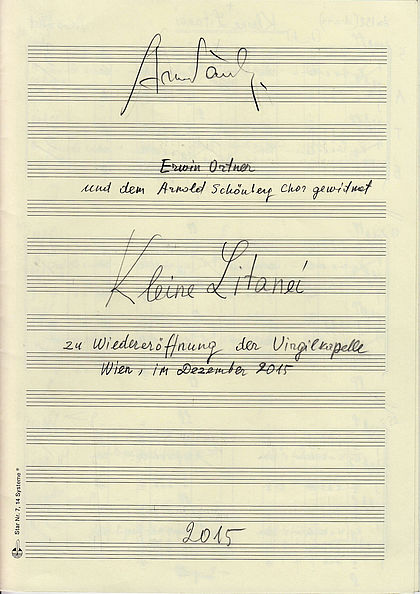 Arvo Pärt
Erwin Ortner
und dem Arnold Schönberg Chor gewidmet
Kleine Litanei
zu Wiedereröffnung der Virgilkapelle
Wien, im Dezember 2015
2015
Star Nr. 7, 14 Systeme ®